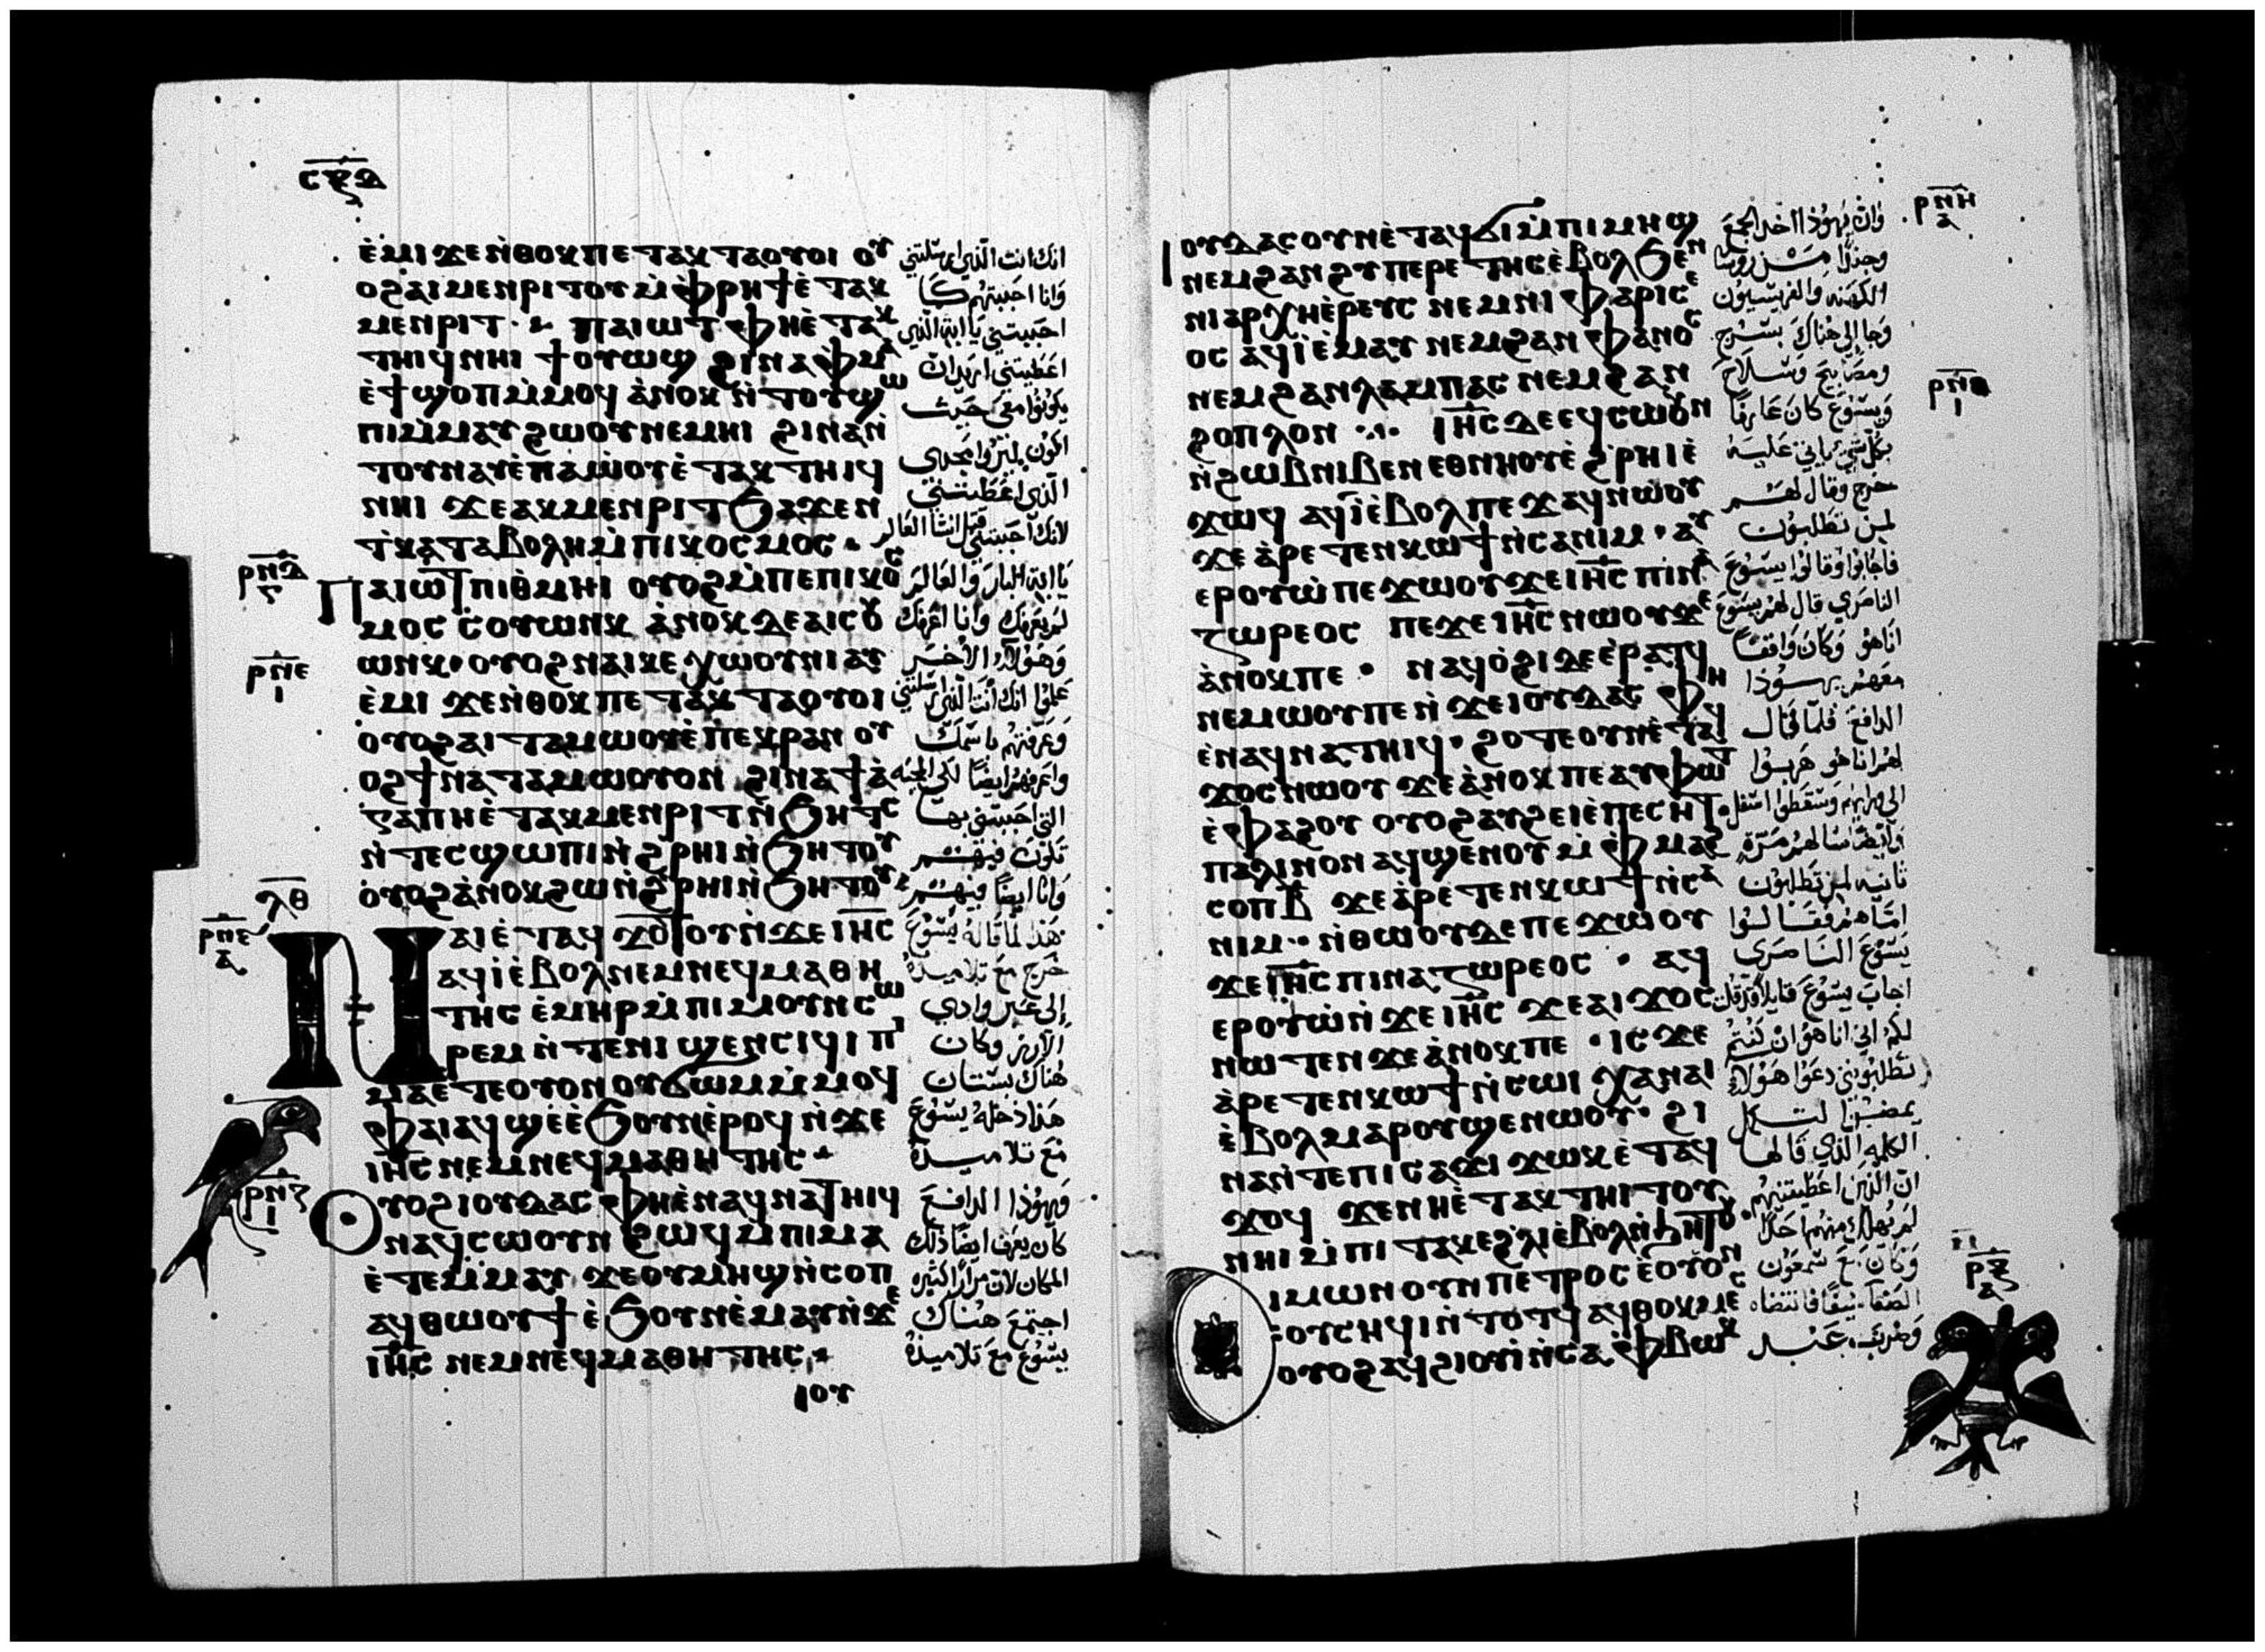 ⲥⲝⲇ
ⲉ̀ⲙⲓ ϫⲉ ⲛ̀ⲑⲟⲕ ⲡⲉ ⲧⲁⲕ ⲧⲁⲟⲩⲟⲓ ⲟⲩ
ⲟϩ ⲁⲓⲙⲉⲛⲣⲓⲧⲟⲩ ⲙ̀ⲫⲣⲏϯ ⲉ̀ⲧⲁⲕ
ⲙⲉⲛⲣⲓⲧ · ⲡⲁⲓⲱⲧ ⲫⲏ ⲉ̀ⲧⲁⲕ
ⲧⲏⲓϥ ⲛⲏⲓ ϯⲟⲩⲱϣ ϩⲓⲛⲁ ⲫⲙⲁ
ⲉ̀ϯϣⲟⲡ ⲙ̀ⲙⲟϥ ⲁ̀ⲛⲟⲕ ⲛ̀ⲧⲟⲩϣⲱ
ⲡⲓ ⲙ̀ⲙⲁⲩ ϩⲱⲟⲩ ⲛⲉⲙⲏⲓ ϩⲓⲛⲁ ⲛ̀
ⲧⲟⲩⲛⲁⲩ ⲉ̀ⲡⲁⲱ̀ⲟⲩ ⲉ̀ⲧⲁⲕⲧⲏⲓϥ
ⲛⲏⲓ ϫⲉ ⲁⲕⲙⲉⲛⲣⲓⲧ ϧⲁϫⲉⲛ
ⲧ̀ⲕⲁⲧⲁⲃⲟⲗⲏ ⲙ̀ⲡⲓⲕⲟⲥⲙⲟⲥ ·
ⲣⲛⲇ ⲋ
ⲡⲁⲓⲱⲧ ⲡⲓⲑⲙⲏⲓ ⲟⲩⲟϩ ⲙ̀ⲡⲉ ⲡⲓⲕⲟⲥ
ⲙⲟⲥ ⲥ̀ⲟⲩⲱⲛⲕ ⲁ̀ⲛⲟⲕ ⲇⲉ ⲁⲓⲥⲟⲩ
ⲱⲛⲕ · ⲟⲩⲟϩ ⲛⲁⲓⲕⲉ ⲭⲱⲟⲩⲛⲓ ⲁⲩ
ⲣⲛⲉ ⲓ
ⲉ̀ⲙⲓ ϫⲉ ⲛ̀ⲑⲟⲕ ⲡⲉ ⲧⲁⲕ ⲧⲁⲟⲩⲟⲓ
ⲟⲩⲟϩ ⲁⲓⲧⲁⲙⲱⲟⲩ ⲉ̀ⲡⲉⲕⲣⲁⲛ ⲟⲩ
ⲟϩ ϯⲛⲁⲧⲁⲙⲱⲟⲩ ⲟⲛ ϩⲓⲛⲁ ϯⲁ̀
ⲅⲁⲡⲏ ⲉ̀ⲧⲁⲕⲙⲉⲛⲣⲓⲧ ⲛ̀ϧⲏⲧⲥ
ⲛ̀ⲧⲉⲥϣⲱⲡⲓ ⲛ̀ϩ̀ⲣⲏⲓ ⲛ̀ϧⲏⲧⲟⲩ
ⲟⲩⲟϩ ⲁ̀ⲛⲟⲕ ϩⲱ ⲛ̀ϩ̀ⲣⲏⲓ ⲛ̀ϧⲏⲧⲟⲩ
ⲗⲑ
ⲣⲛⲉ ⲁ
ⲛⲁⲓ ⲉ̀ⲧⲁϥϫⲟⲧⲟⲩ ⲛ̀ϫⲉ ⲓⲏⲥ
ⲁϥⲓ̀ ⲉ̀ⲃⲟⲗ ⲛⲉⲙ ⲛⲉϥⲙⲁⲑⲏ
ⲧⲏⲥ ⲉ̀ⲙⲏⲣ ⲙ̀ⲡⲓⲙⲟⲩⲛⲥⲱ
ⲣⲉⲙ ⲛ̀ⲧⲉ ⲛⲓϣⲉⲛⲥⲓϥⲓ ⲡⲓ
ⲙⲁ ⲉ̀ⲧⲉ ⲟⲩⲟⲛ ⲟⲩϭⲱⲙ ⲙ̀ⲙⲟϥ
ⲫⲁⲓ ⲁϥϣⲉ ⲉ̀ϧⲟⲩⲛ ⲉ̀ⲣⲟϥ ⲛ̀ϫⲉ
ⲓⲏⲥ ⲛⲉⲙ ⲛⲉϥⲙⲁⲑⲏⲧⲏⲥ
ⲣⲛⲍ ⲓ
ⲟⲩⲟϩ ⲓⲟⲩⲇⲁⲥ ⲫⲏ ⲉ̀ⲛⲁϥⲛⲁⲧⲏⲓϥ
ⲛⲁϥⲥⲱⲟⲩⲛ ϩⲱϥ ⲙ̀ⲡⲓⲙⲁ
ⲉ̀ⲧⲉⲙ̀ⲙⲁⲩ ϫⲉ ⲟⲩⲙⲏϣ ⲛ̀ⲥⲟⲡ
ⲁϥⲑⲱⲟⲩϯ ⲉ̀ϧⲟⲩⲛ ⲉ̀ⲙⲁⲩ ⲛ̀ϫⲉ
ⲓⲏⲥ ⲛⲉⲙ ⲛⲉϥⲙⲁⲑⲏⲧⲏⲥ
ⲓⲟⲩ
انك انت الذي ارسلتني
وانا احببتهم كما
احببتني يا ابة الذي
اعطيتني اريد ان
يكونوا معي حيث
اكون لينظروا مجدي
الذي اعطيتني
لانك احببتني قبل انشا العالم
يا ابة البار والعالم
لم يعرفك وانا اعرفك
وهولاء الاخر
علموا انك انت الذي ارسلتني
وعرفتهم باسمك
واعرفهم ايضا لكي المحبه
التي احببتني بها
تكون فيهم
وانا ايضا فيهم
هذا لما قاله يسوع
خرج مع تلاميذه
الى عبر وادي
الارز وكان
هناك بستان
هذا دخله يسوع
مع تلاميذه
ويهوذا الدافع
كان يعرف ايضا ذلك
المكان لان مرارا كثيره
اجتمع هناك
يسوع مع تلاميذه
ⲣⲛⲏ ⲁ
ⲓⲟⲩⲇⲁⲥ ⲟⲩⲛ ⲉ̀ⲧⲁϥϭⲓ ⲙ̀ⲡⲓⲙⲏϣ
ⲛⲉⲙ ϩⲁⲛ ϩⲩⲡⲉⲣⲉⲧⲏⲥ ⲉ̀ⲃⲟⲗ ϧⲉⲛ
ⲛⲓⲁⲣⲭⲏⲉ̀ⲣⲉⲩⲥ ⲛⲉⲙ ⲛⲓⲫⲁⲣⲓⲥⲉ
ⲟⲥ ⲁϥⲓ̀ ⲉ̀ⲙⲁⲩ ⲛⲉⲙ ϩⲁⲛ ⲫⲁⲛⲟⲥ
ⲛⲉⲙ ϩⲁⲛ ⲗⲁⲙⲡⲁⲥ ⲛⲉⲙ ϩⲁⲛ
ⲣⲛⲑ ⲓ
ϩⲟⲡⲗⲟⲛ · ⲓⲏⲥ ⲇⲉ ⲉϥⲥⲱⲟⲩⲛ
ⲛ̀ϩⲱⲃ ⲛⲓⲃⲉⲛ ⲉⲑⲛⲏⲟⲩ ⲉ̀ϩ̀ⲣⲏⲓ ⲉ̀
ϫⲱϥ ⲁϥⲓ̀ ⲉ̀ⲃⲟⲗ ⲡⲉϫⲁϥ ⲛⲱⲟⲩ
ϫⲉ ⲁ̀ⲣⲉⲧⲉⲛⲕⲱϯ ⲛ̀ⲥⲁ ⲛⲓⲙ · ⲁⲩ
ⲉⲣⲟⲩⲱ̀ ⲡⲉϫⲱⲟⲩ ϫⲉ ⲓⲏⲥ ⲡⲓⲛⲁ
ⲍⲱⲣⲉⲟⲥ ⲡⲉϫⲉ ⲓⲏⲥ ⲛⲱⲟⲩ ϫⲉ
ⲁ̀ⲛⲟⲕ ⲡⲉ · ⲛⲁϥⲟ̀ϩⲓ ⲇⲉ ⲉ̀ⲣⲁⲧϥ
ⲛⲉⲙⲱⲟⲩ ⲡⲉ ⲛ̀ϫⲉ ⲓⲟⲩⲇⲁⲥ ⲫⲏ
ⲉ̀ⲛⲁϥⲛⲁⲧⲏⲓϥ · ϩⲟⲧⲉ ⲟⲩⲛ ⲉ̀ⲧⲁϥ
ϫⲟⲥ ⲛⲱⲟⲩ ϫⲉ ⲁ̀ⲛⲟⲕ ⲡⲉ ⲁⲩⲫⲱⲧ
ⲉ̀ⲫⲁϩⲟⲩ ⲟⲩⲟϩ ⲁⲩϩⲉⲓ ⲉ̀ⲡⲉⲥⲏⲧ ·
ⲡⲁⲗⲓⲛ ⲟⲛ ⲁϥϣⲉⲛⲟⲩ ⲙ̀ⲫⲙⲁϩ
ⲥⲟⲡ ⲃ ϫⲉ ⲁ̀ⲣⲉⲧⲉⲛⲕⲱϯ ⲛ̀ⲥⲁ
ⲛⲓⲙ · ⲛ̀ⲑⲱⲟⲩ ⲇⲉ ⲡⲉϫⲱⲟⲩ
ϫⲉ ⲓⲏⲥ ⲡⲓⲛⲁⲍⲱⲣⲉⲟⲥ · ⲁϥ
ⲉⲣⲟⲩⲱ̀ ⲛ̀ϫⲉ ⲓⲏⲥ ϫⲉ ⲁⲓϫⲟⲥ
ⲛⲱⲧⲉⲛ ϫⲉ ⲁ̀ⲛⲟⲕ ⲡⲉ · ⲓⲥϫⲉ
ⲁ̀ⲣⲉⲧⲉⲛⲕⲱϯ ⲛ̀ⲥⲱⲓ ⲭⲁ ⲛⲁⲓ
ⲉ̀ⲃⲟⲗ ⲙⲁⲣⲟⲩϣⲉⲛⲱⲟⲩ · ϩⲓ
ⲛⲁ ⲛ̀ⲧⲉ ⲡⲓⲥⲁϫⲓ ϫⲱⲕ ⲉ̀ⲧⲁϥ
ϫⲟϥ ϫⲉ ⲛⲏ ⲉ̀ⲧⲁⲕⲧⲏⲓⲧⲟⲩ
ⲛⲏⲓ ⲙ̀ⲡⲓⲧⲁⲕⲉ ϩ̀ⲗⲓ ⲉ̀ⲃⲟⲗ ⲛ̀ϧⲏⲧⲟⲩ ·
ⲣⲝ ⲁ
ⲥⲓⲙⲱⲛ ⲟⲩⲛ ⲡⲉⲧⲣⲟⲥ ⲉ̀ⲟⲩⲟⲛ
ⲟⲩⲥⲏϥⲓ ⲛ̀ⲧⲟⲧϥ ⲁϥⲑⲟⲕⲙⲉⲥ
ⲟⲩⲟϩ ⲁϥϩⲓⲟⲩⲓ̀ ⲛ̀ⲥⲁ ⲫⲃⲱⲕ
وان يهوذا اخذ الجمع
وجندا من روسا
الكهنه والفريسيون
وجا الى هناك بسرج
ومصابيح وسلاح
ويسوع كان عارفا
بكل شي ياتي عليه
خرج وقال لهم
لمن تطلبون
فاجابوا وقالوا يسوع
الناصري قال لهم يسوع
انا هو وكان واقفا
معهم يهوذا
الدافع فلما قال
لهم انا هو هربوا
الى ورايهم وسقطوا اسفل
وايضا سالهم مرة
ثانيه لمن تطلبون
اما هم فقالوا
يسوع الناصري
اجاب يسوع قايلا قد قلت
لكم اني انا هو ان كنتم
تطلبونني دعوا هولاء
يمضون لتكمل
الكلمه الذي قالها
ان الذين اعطيتنيهم
لم يهلك منهم احدا
وكان مع شمعون
الصفا سيفا فانتضاه
وضرب عبد